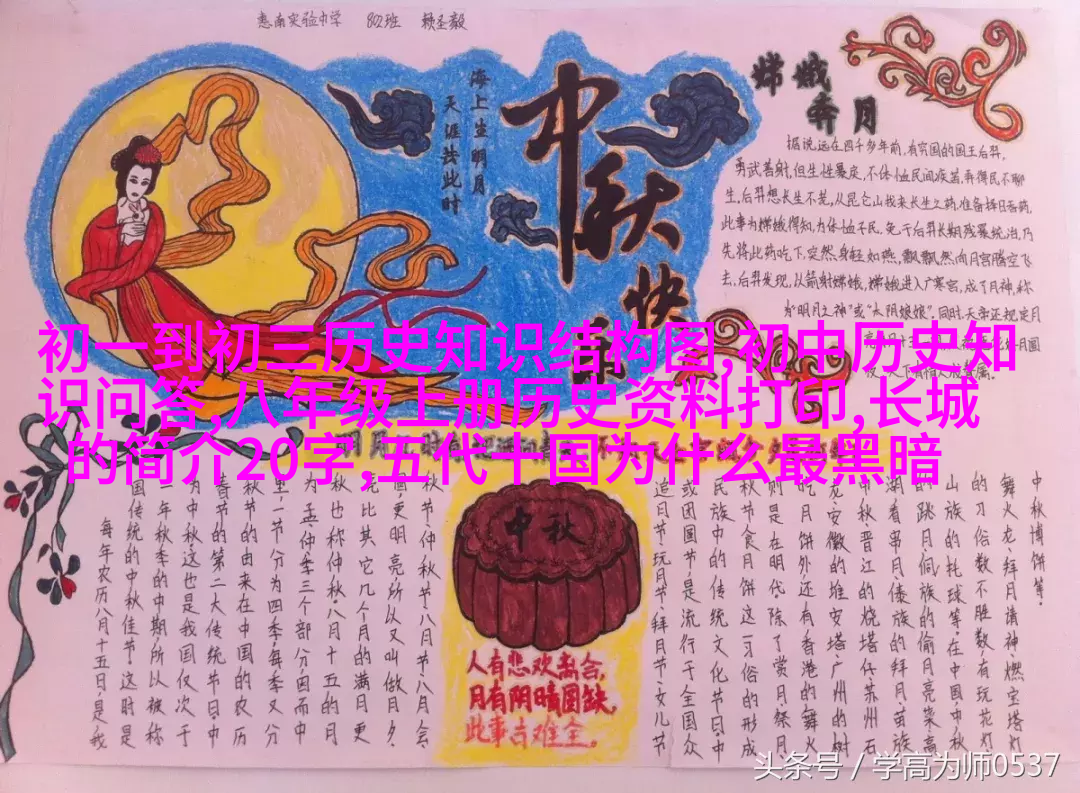 惠南实验中学 802班 赖圣毅
海上生明月
天涯共此时
中秋快
嫦娥
奔月
据说,远在四千多年前,有穷国的国王后羿,
勇武善射,但生性暴戾,不体恤民间疾苦,弄得民不聊
生,后羿想长生不老,从昆仑山找来长生之药,准备择日吞药,
此事为嫦娥得知,为体恤不民,免于后羿长期残暴统治,乃
先将此药吃下,突然身轻如燕,飘飘然向月宫腾空飞
去,后羿发现,以箭射嫦娥,嫦娥进入广寒宫,成了月神,称
为“明月之神”或“太阴娘娘”,同时,天帝还规定月
初一到初三历史知识结构图,初中历史知
识问答,八年级上册历史资料打印,长城
的简介20字,五代十国为什么最黑暗
中秋博饼等。
舞火龙、拜月请神、燃宝塔灯
的习俗数不胜数,有玩花灯
山族的托球等,在中国,中秋
的跳月、侗族的偷月亮菜、高
湖看串月、傣族的拜月、苗族
中秋、晋江的烧塔仔、苏州石
龙、安徽的堆宝塔、广州的树
吃月饼外,还有香港的舞火
则是在明代,除了赏月、祭月
秋节食月饼这一习俗的形成
民族中的传统文化节日,中
或团圆节,是流行于全国众
追月节、玩月节、拜月节、女儿节
中秋
人有悲欢离合,
月有阴晴圆缺,
此事古难全。
秋节、仲秋节、八月节、八月会
圆,更明亮,所以又叫做月夕
比其它几个月的满月更
秋也称仲秋,八月十五的月
为孟、仲、季三个部分,因而中
里,一年分为四季,每季又分
秋节的由来在中国的农历
春节的第二大传统节日,中
为中秋,这也是我国仅次于
年秋季的中期,所以被称
国传统的中秋佳节,这时是
每年农历八月十五日,是我
头条号 / 学高为师0537